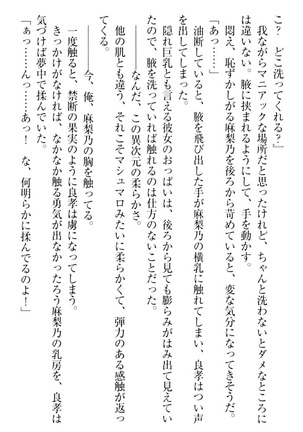 こ？　どこ洗ってくれる？」
　我ながらマニアックな場所だと思ったけれど、ちゃんと洗わないとダメなところに
は違いない。腋に挟まれるようにして、手を動かす。
　悶え、恥ずかしがる麻梨乃を後ろから苛めていると、変な気分になってきそうだ。
「あっ……」
　油断していると、腋を飛び出した手が麻梨乃の横乳に触れてしまい、良孝はつい声
を出してしまった。
　隠れ巨乳とも言える彼女のおっぱいは、後ろから見ても膨らみがはみ出て見えてい
たので、腋を洗っていれば触れるのは仕方のないことだった。
　――なんだ、この異次元の柔らかさ。
　他の肌とも違う、それこそマシュマロみたいに柔らかくて、弾力のある感触が返っ
てくる。
　――今、俺、麻梨乃の胸を触ってる。
　一度触ると、禁断の果実のように良孝は虜になってしまう。
　きっかけがなければ、なかなか触る勇気が出なかったろう麻梨乃の乳房を、良孝は
気づけば夢中で揉んでいた。
「あっ……んっ……あっ！　な、何明らかに揉んでるのよ！」